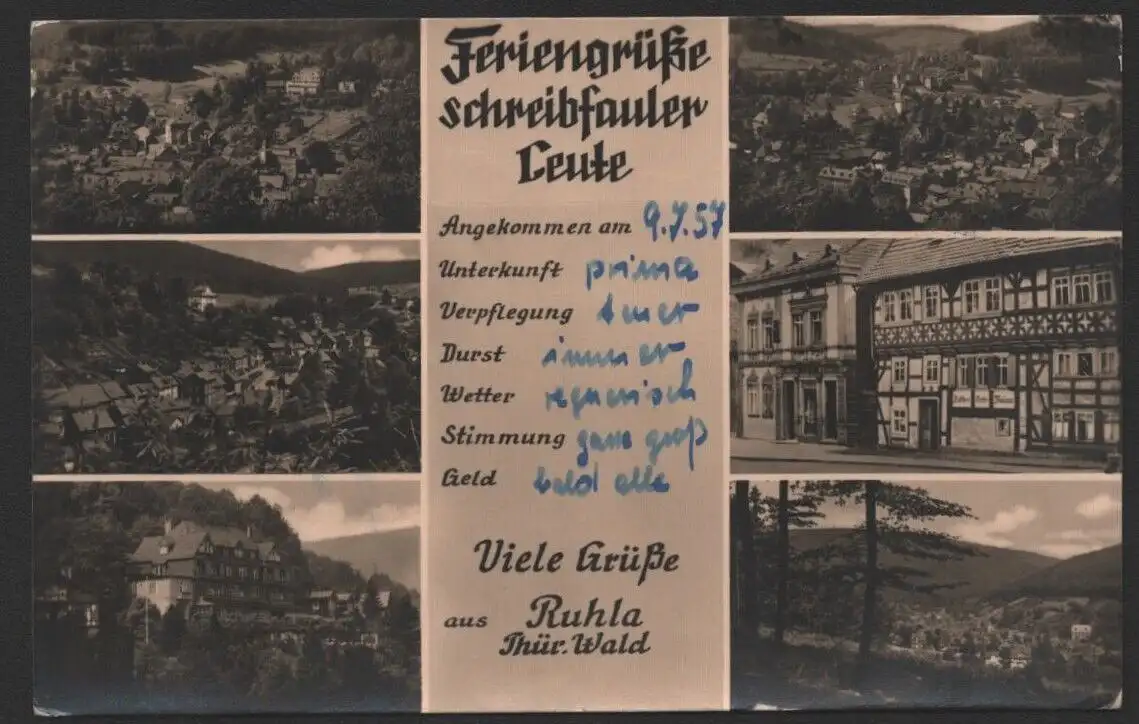 Feriengrüße
schreibfauler
Leute
Angekommen am 9.7.57
Unterkunft prima
Verpflegung
Durst immer
Wetter regnerisch
Stimmung ganz groß
Geld bald alle
Viele Grüße
aus Ruhla
Thür. Wald